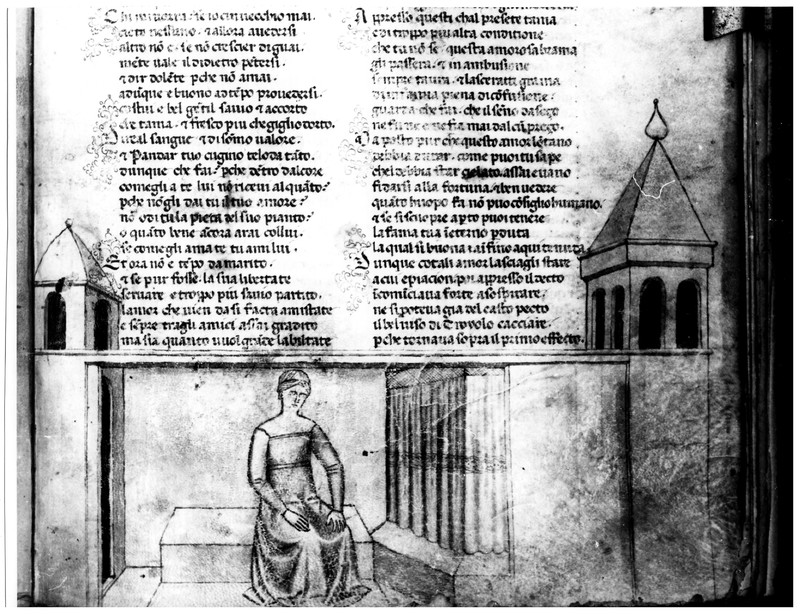 Chi miuorra . se io cin uecchio mai
Certo nessuno . & allora auedersi
altro nõ e . se nõ crescier di guai .
niẽte uale il didietro pẽtersi .
& dir dolẽte pche nõ amai .
adũque e buono adtẽpo prouedersi .
Costui e bel gẽtil sauio & accorto
che tama . & fresco piu che giglio dorto .
Di real sangue & di sõmo ualore .
& Pandar tuo cugino teloda tãto .
dunque che fai . pche dẽtro dalcore
comegli a te lui nõ riceui alquãto .
pche nõgli dai tu il tuo amore .
nõ odi tu la pieta del suo pianto .
o quãto bene ãcora arai collui .
se comegli ama te tu ami lui .
Et ora nõ e tẽpo da marito .
& se pur fosse . la sua libertate
seruare e troppo piu sauio partito .
lamor che uien da si facta amistate
e sẽpre tragli amici assai gradito
ma sia quanto uuol grãde labiltate
Appresso questi chal presẽte tama
e di troppo piu alta conditione
che tu nõ se . questa amorosa brama
gli passera . & in
sempre taura . & lasceratti grama
piena di cõfusione .
guarda che fai . che il seno dasego
ne fu ne fia mai dalcũ prego .
Ma posto pur che questo amor lõtano
debbia durar . come puoi tu sape
chel debbia star gelato . assai e uano
fidarsi alla fortuna . & ben uedere
quãto huopo fa nõ puo cõsiglio humano .
& se si scuopre apto puoi tenere
la fama tua ĩeterno pduta
la qual si buona ĩ sino aqui tenuta
Dunque cotali amor lasciagli stare
a cui e piacion . poi appresso il decto
ĩcomĩciaua forte a sospirare .
ne si poteua gia del casto pecto
il bel uiso di Troyolo cacciare .
pche tornaua sopra il primo effecto .